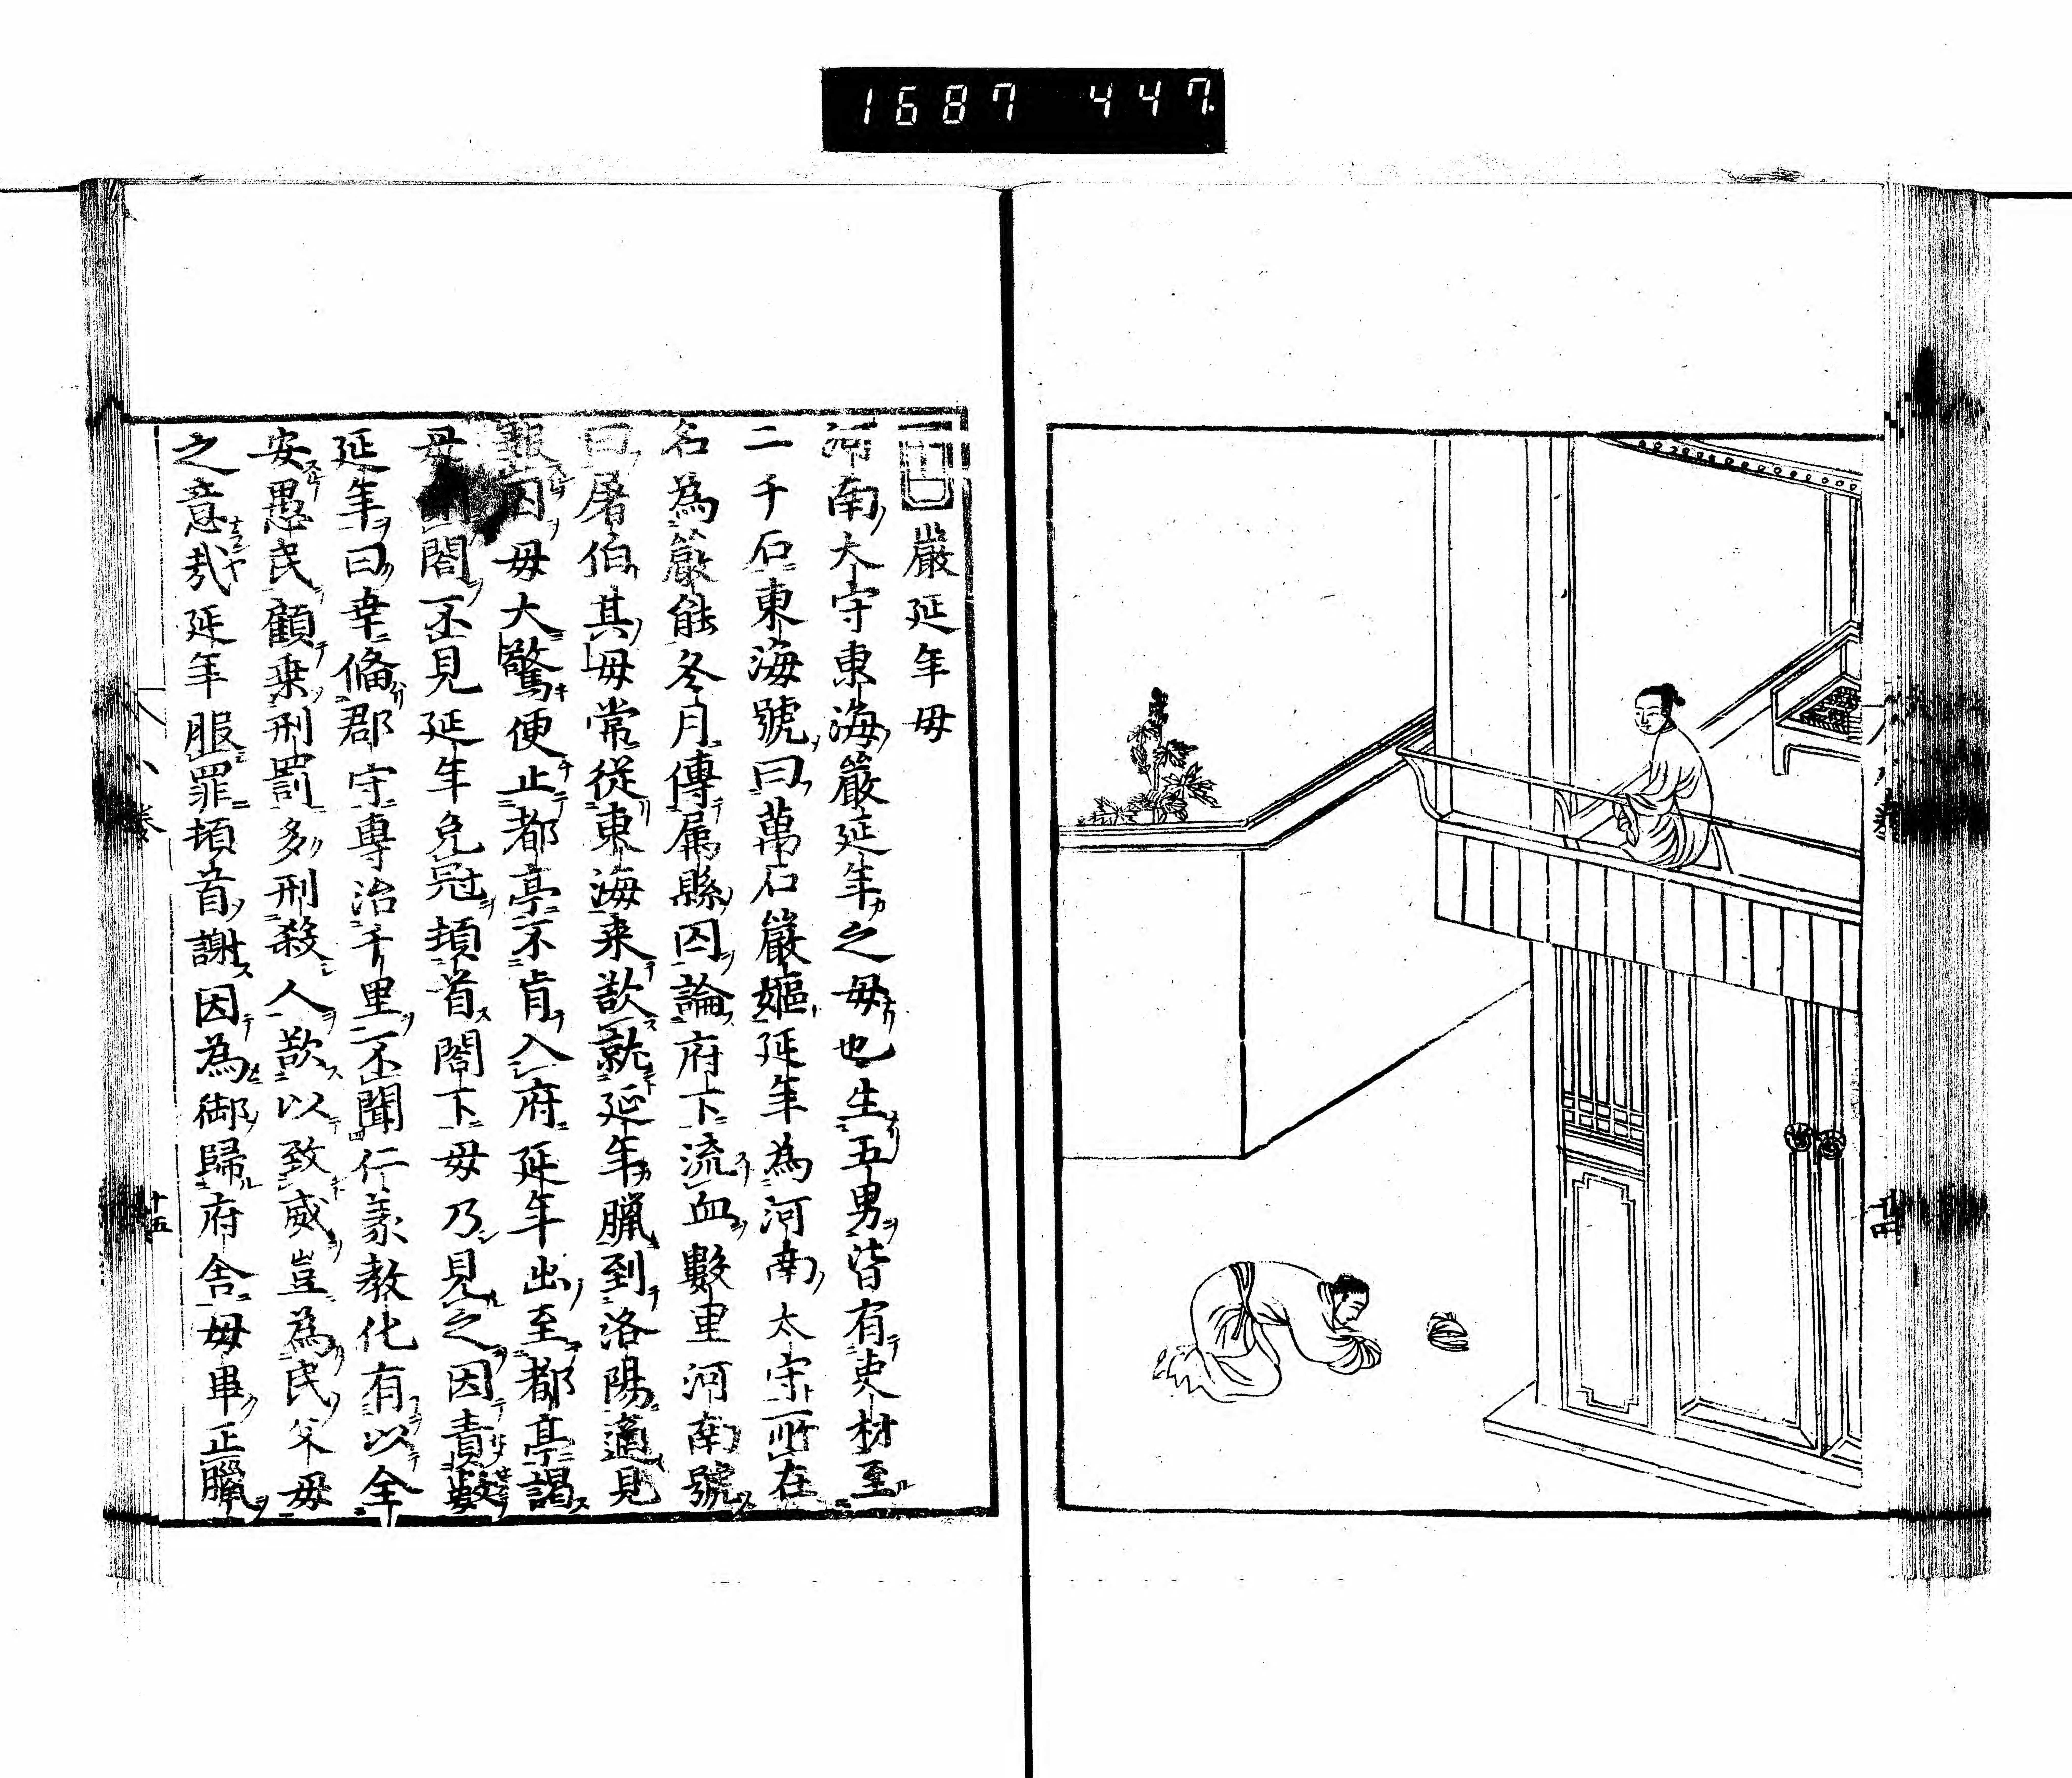 1687 447
嚴延年母
河南太守東海嚴延年之母也生五男皆有吏材至
二千石東海號曰萬石嚴嫗延年為河南太守所在
名為嚴能冬月傳属縣囚論府下流血數里河南號
曰屠伯其母常從東海来欲就延年臘到洛陽適見
報囚母大驚便止都亭不肯入府延年出至都亭謁
母閉閤不見延年免冠頓首閤下母乃見之因責數
延年曰幸備郡守專治千里不聞仁義教化有以全
安愚民顧乗刑罰多刑殺人欲以致威豈為民父母
之意哉延年服罪頓首謝因為御歸府舎母畢正臘
十五